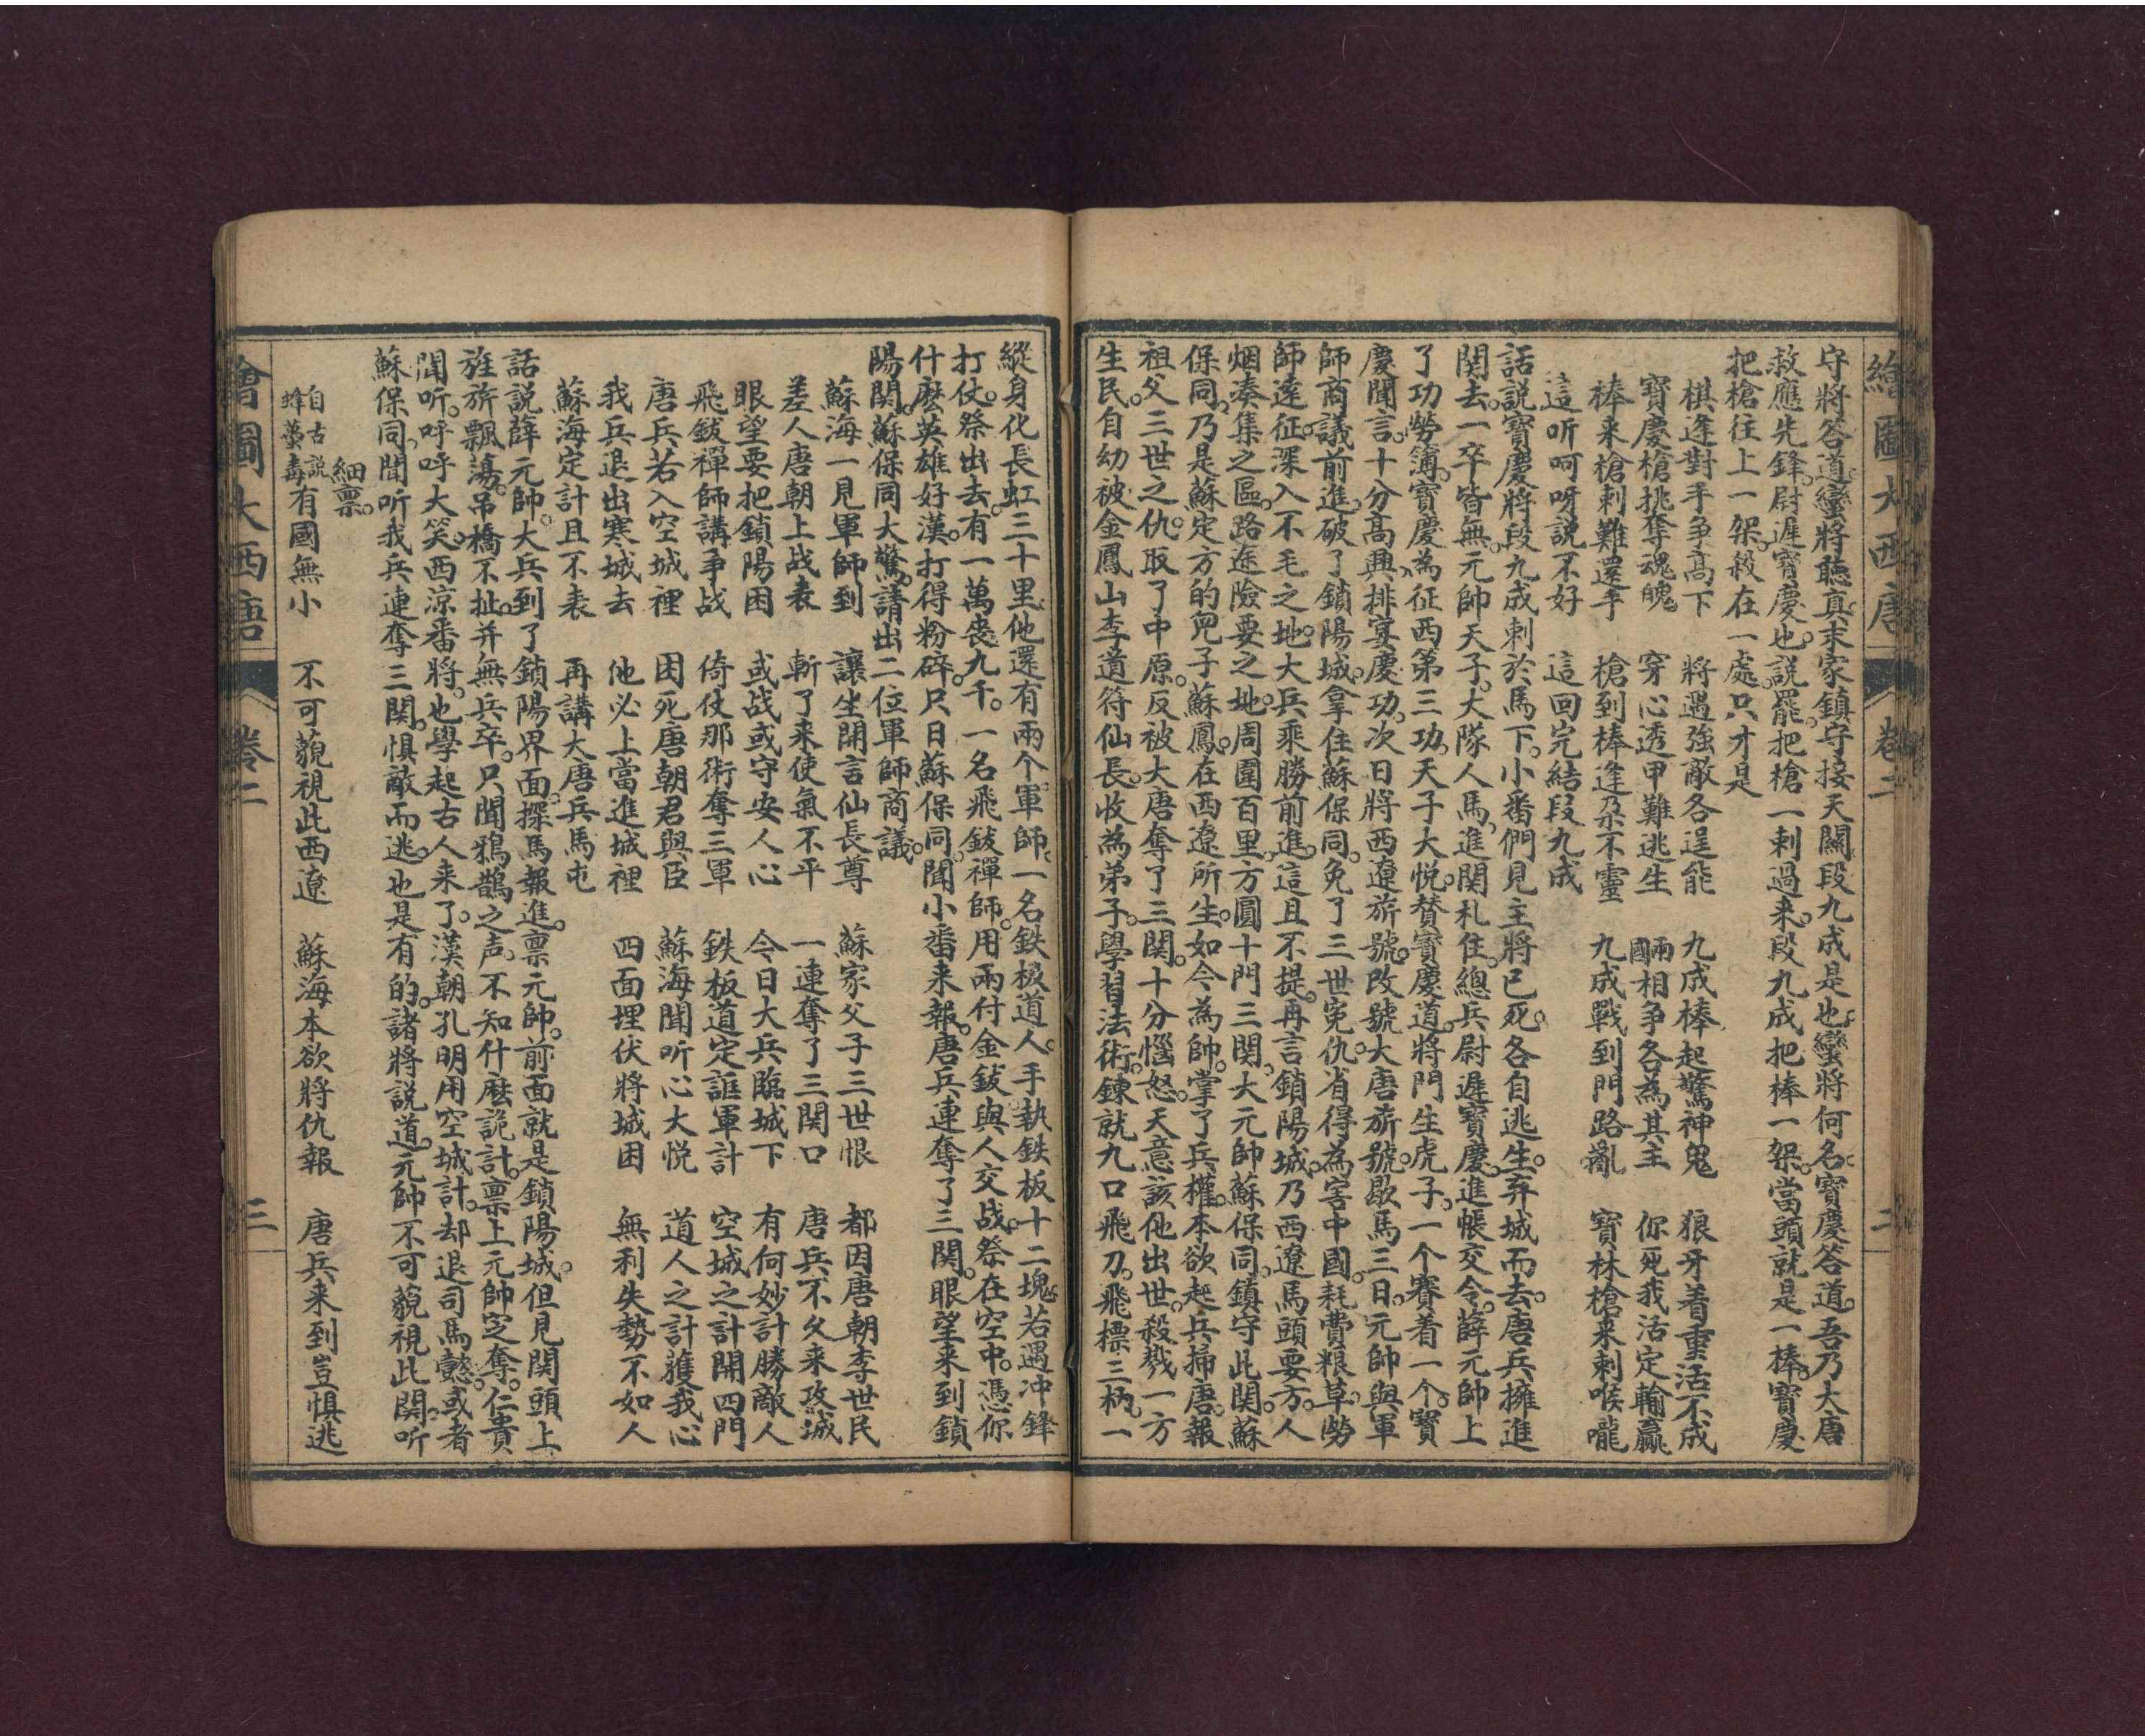 繪圖大西唐 卷二 二
守將答道。蠻將聽真。末家鎮守接天關段九成是也。蠻將何名。寶慶答道。吾乃大唐
救應先鋒。尉遲寶慶也。說罷。把槍一刺過来。段九成把棒一架。當頭就是一棒。寶慶
把槍往上一架。殺在一處。只才是
棋逢對手爭高下 將遇強敵各逞能 九成棒起驚神鬼 狼牙着重活不成
寶慶槍挑奪魂魄 穿心透甲難逃生 兩國相爭各為其主 你死我活定輸贏
棒来槍刺難還手 槍到棒逢朶不靈 九成戰到門路亂 寶林槍来刺喉嚨
這听呵呀說不好 這回完結段九成
話說寶慶將段九成刺於馬下。小番們見主將已死。各自逃生。弃城而去。唐兵擁進
関去。一卒皆無。元帥天子。大隊人馬。進関札住。總兵尉遲寶慶。進帳交令。薛元帥上
了功勞簿。寶慶為征西第三功。天子大悅。賛寶慶道。將門生虎子。一个賽着一个。寶
慶聞言。十分高興。排宴慶功。次日將西遼旂號。改號大唐旂號。歇馬三日。元帥與軍
師商議前進。破了鎖陽城。拿住蘇保同。免了三世寃仇。省得為害中國。耗費粮草。勞
師逺征。深入不毛之地。大兵乘勝前進。這且不提。再言鎖陽城。乃西遼馬頭要方。人
烟凑集之區。路途險要之地。周圍百里。方圓十門三関。大元帥蘇保同。鎮守此関。蘇
保同。乃是蘇定方的兒子蘇鳳。在西遼所生。如今為帥。掌了兵權。本欲起兵掃唐。報
祖父三世之仇。取了中原。反被大唐奪了三関。十分惱怒。天意該他出世。殺戮一方
生民。自幼被金鳳山李道符仙長。收為弟子。學習法術。鍊就九口飛刀。飛標三柄。一
縱身化長虹三十里。他還有兩个軍師。一名鉄板道人。手執鉄板十二塊。若遇冲鋒
打仗。祭出去。有一萬喪九千。一名飛鈸禪師。用兩付金鈸。與人交战。祭在空中。憑你
什麽英雄好漢。打得粉碎。只日蘇保同。聞小番来報。唐兵連奪了三関。眼望来到鎖
陽関。蘇保同大驚。請出二位軍師商議。
蘇海一見軍師到 讓坐開言仙長尊 蘇家父子三世恨 都因唐朝李世民
差人唐朝上战表 斬了来使氣不平 一連奪了三関口 唐兵不久来攻城
眼望要把鎖陽困 或战或守安人心 今日大兵臨城下 有何妙計勝敵人
飛鈸禪師講爭战 倚仗那術奪三軍 鉄板道定誆軍計 空城之計開四門
唐兵若入空城裡 困死唐朝君與臣 蘇海聞听心大悅 道人之計獲我心
我兵退出寒城去 他必上當進城裡 四面埋伏將城困 無利失勢不如人
蘇海定計且不表 再講大唐兵馬屯
話說薛元帥。大兵到了鎖陽界面。探馬報進。禀元帥。前面就是鎖陽城。但見関頭上
旌旂飄蕩。吊橋不扯。并無兵卒。只聞鴉鵲之声。不知什麽詭計。禀上元帥定奪。仁貴
聞听。呼呼大笑。西涼番將。也學起古人来了。漢朝孔明用空城計。却退司馬懿。或者
蘇保同。聞听我兵連奪三関。惧敵而逃。也是有的。諸將說道。元帥不可藐視此関。听
細禀。
自古說蜂蠆毒有國無小 不可藐視此西遼 蘇海本欲將仇報 唐兵来到豈惧逃
繪圖大西唐 卷二 三